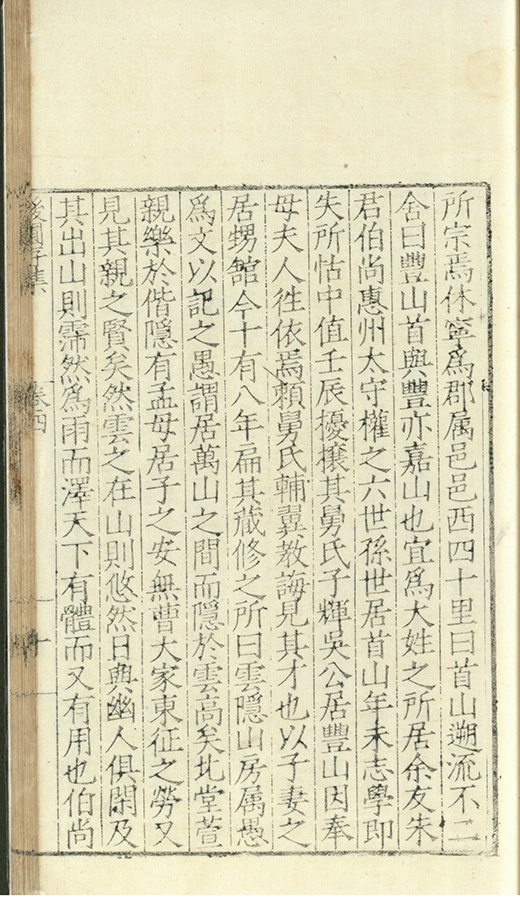 所宗焉休寧爲郡属邑邑西四十里曰首山遡流不二
舍曰豐山首與豐亦嘉山也宜爲大姓之所居余友朱
君伯尚惠州太守權之六世孫世居首山年未志學即
失所怙中值壬辰擾攘其舅氏子輝吳公居豐山因奉
母夫人徃依焉頼舅氏輔翼教誨見其才也以子妻之
居甥舘今十有八年扁其藏修之所曰雲隐山房属愚
爲文以記之愚謂居萬山之間而隱於雲高矣北堂萱
親樂於偕隐有孟母居子之安無曹大家東征之勞又
見其親之賢矣然雲之在山則悠然日與幽人俱閑及
其出山則霈然爲雨而澤天下有體而又有用也伯尚
集 卷四